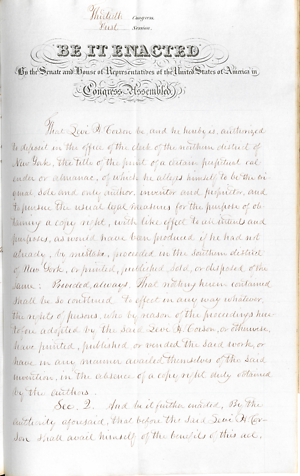 Thirtieth Congress
First Session
BE IT ENACTED
By the Senate and House of Representatives of the United States of America in
Congress Assembled,
That Levi H. Corson be, and he hereby is, authorized
to deposit in the office of the clerk of the northern district of
New York, the title of the print of a certain perpetual cal
endar or almanac, of which he alleges himself to be the or
iginal sole and only author, inventor and proprietor, and
to pursue the usual legal measures for the purpose of ob-
taining a copy right, with like effect to all intents and
purposes, as would have been produced if he had not
already, by mistake, proceeded in the southern district
of New York, or printed, published, sold, or disposed of the
same: Provided, always, That nothing herein contained
shall be so construed to effect in any way whatever,
the rights of persons, who by reason of the proceedings here-
tofore adopted by the said Levi H. Corson, or otherwise,
have printed, published or vended the said work, or
have in any manner availed themselves of the said
invention, in the absence of a copy right duly obtained
by the authors.
Sec. 2. And be it further enacted, By the
authority aforesaid, that before the said Levi H. Cor-
son shall avail himself of the benefits of this act,